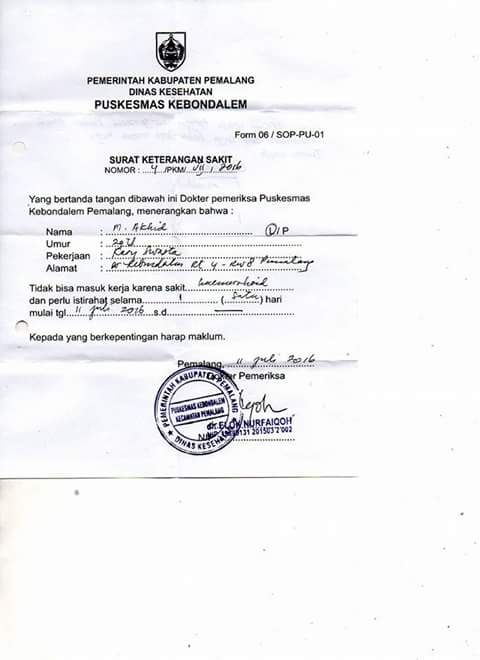 PEMERINTAH KABUPATEN PEMALANG
DINAS KESEHATAN
PUSKESMAS KEBONDALEM
Form 06 / SOP-PU-01
SURAT KETERANGAN SAKIT
NOMOR : 4 /PKM/ VII / 2016
Yang bertanda tangan dibawah ini Dokter pemeriksa Puskesmas
Kebondalem Pemalang, menerangkan bahwa :
Nama : M. Akhid L/P
Umur :
Pekerjaan : Swasta
Alamat : Kebondalem Rt 4 - RW 8 Pemalang
Tidak bisa masuk kerja karena sakit haemorrhoid
dan perlu istirahat selama 1 ( satu ) hari
mulai tgl 11 juli 2016 s.d
Kepada yang berkepentingan harap maklum.
Pemalang, 11 juli 2016
Dokter Pemeriksa
PEMERINTAH KABUPATEN PEMALANG
PUSKESMAS KEBONDALEM
KECAMATAN PEMALANG
DINAS KESEHATAN
dr. ELOK NURFAIQOH
201503 2 002